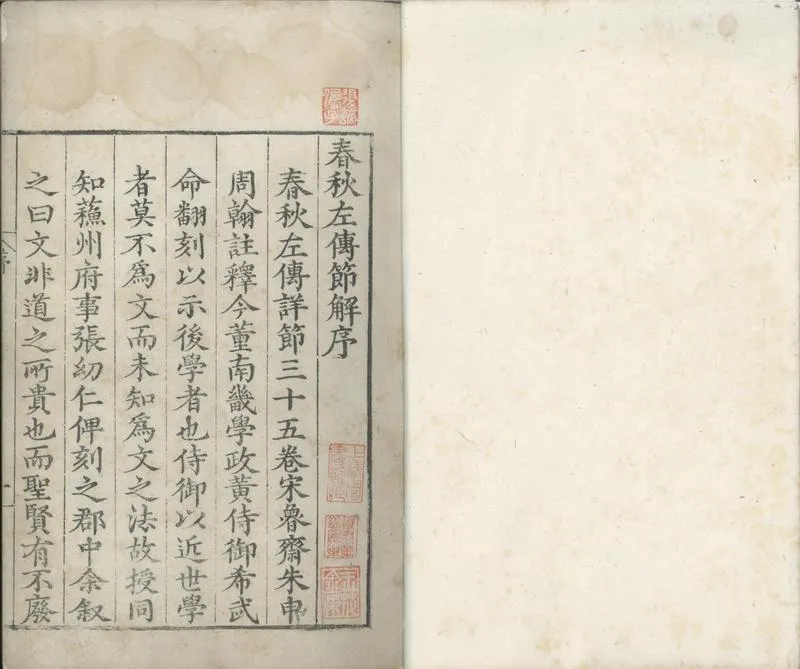 春秋左傳節解序
春秋左傳詳節三十五卷宋魯齋朱申
周翰註釋今董南畿學政黃侍御希武
命翻刻以示後學者也侍御以近世學
者莫不爲文而未知爲文之法故授同
知蘓州府事張幼仁俾刻之郡中余叙
之曰文非道之所貴也而聖賢有不廢
序
一